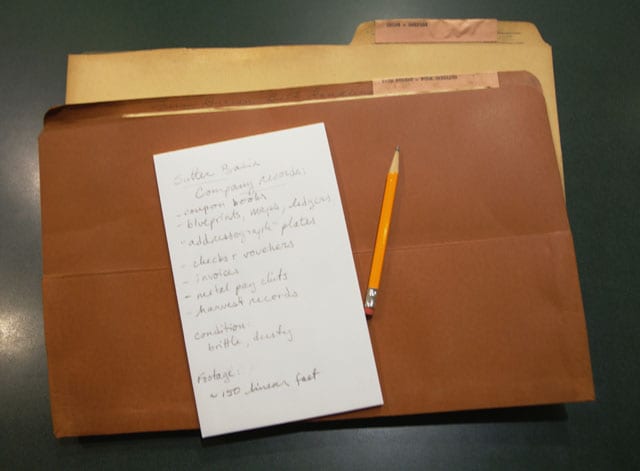 Sutter Basin
Company records:
- coupon books
- blueprints, maps, ledgers
- "addressograph" plates
- checks + vouchers
- invoices
- metal pay chits
- harvest records
condition:
brittle, dusty
Footage:
~ 150 linear feet